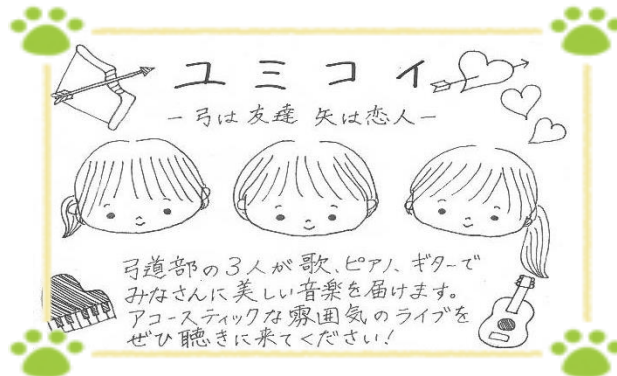 ユミコイ
－弓は友達 矢は恋人－
弓道部の3人が歌、ピアノ、ギターで
みなさんに美しい音楽を届けます。
アコースティックな雰囲気のライブを
ぜひ聴きに来てください!